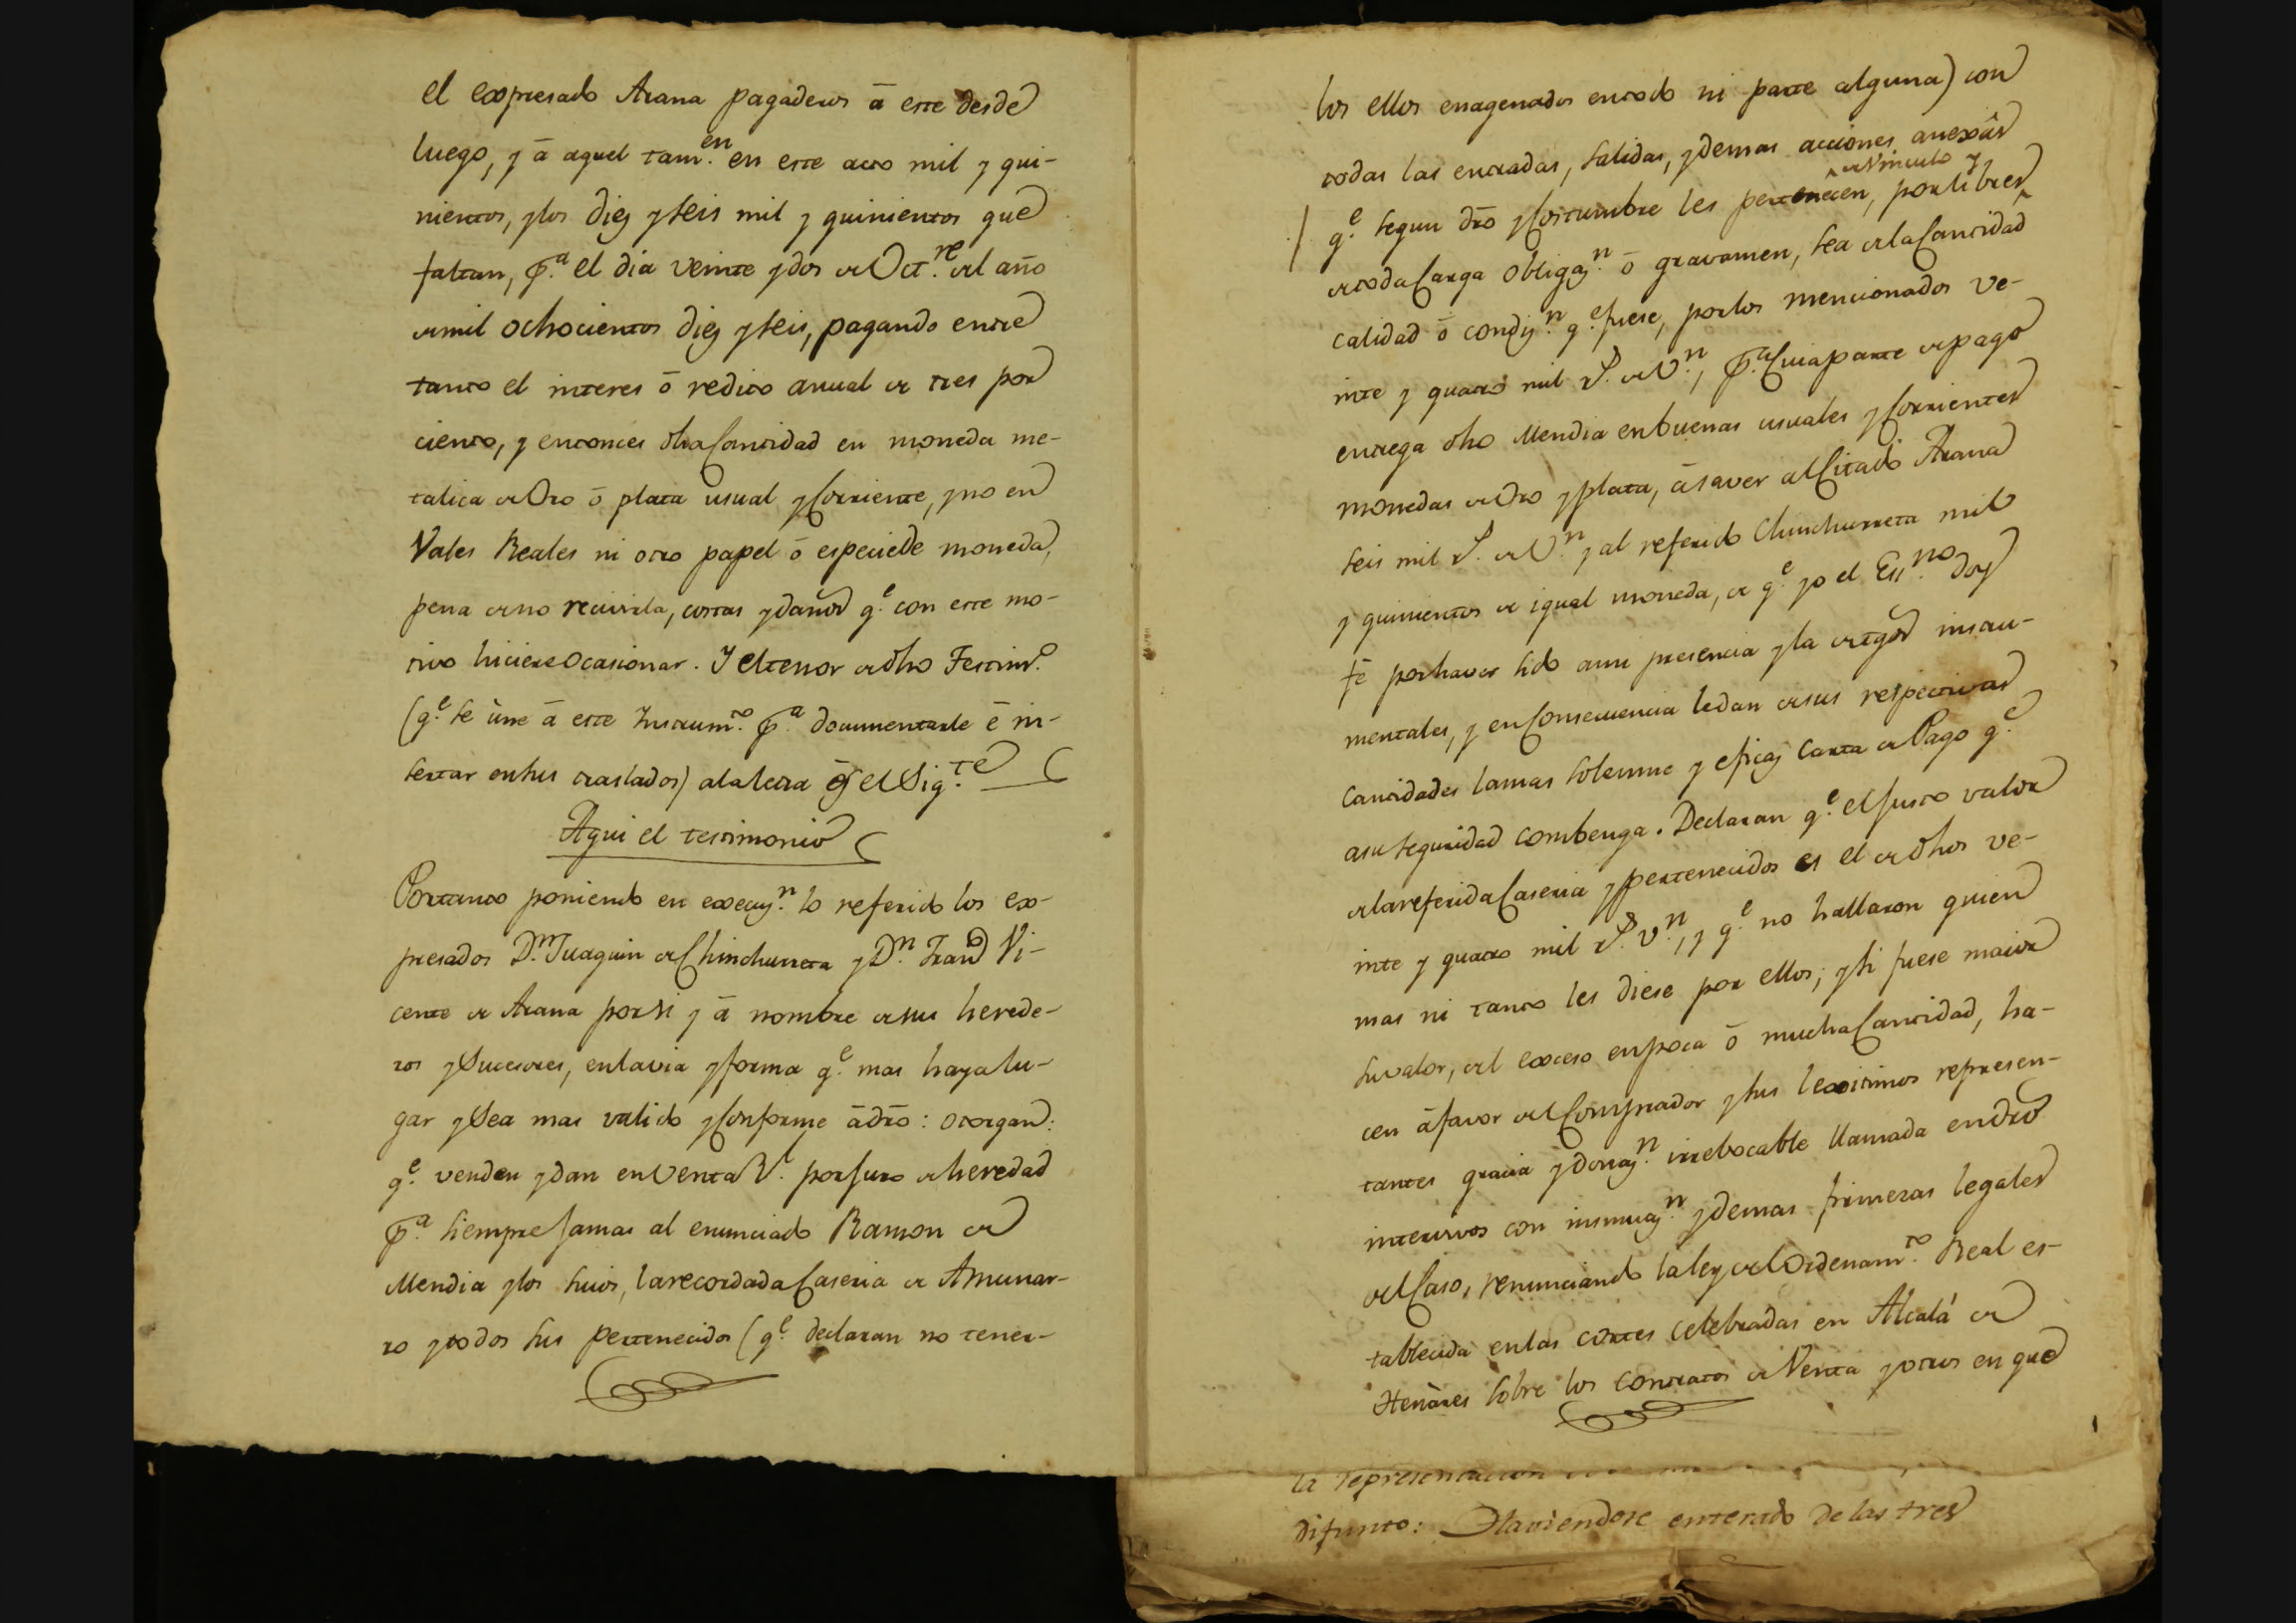 el expresado Arana pagaderos á este desde
luego, y á aquel tam.en en este acto mil y qui-
nientos, y los diez y seis mil y quinientos que
faltan, p.a el dia veinte y dos de Oct.re del año
de mil ochocientos diez y seis, pagando entre
tanto el interes ó redito anual de tres por
ciento, y entonces dha Cantidad en moneda me-
talica de Oro ó plata usual y Corriente, y no en
Vales Reales ni otro papel ó especie de moneda,
pena de no recivirla, costas y daños q.e con este mo-
tivo hiciere Ocasionar. Y el tenor de dho Testim.o
(q.e se úne á este Instrum.to p.a documentarle é in-
sertar en sus traslados) ala letra es el Sig.te
Aqui el testimonio
Portanto poniendo en execuz.n lo referido los ex-
presados D.n Juaquin de Chinchurreta y D.n Fran.co Vi-
cente de Arana por si y á nombre de sus herede-
ros y Sucesores, en la via y forma q.e mas haya lu-
gar y Sea mas valido y Conforme á dro: otorgan:
q.e venden y dan en Venta R.l por juro de heredad
p.a siempre Jamas al enunciado Ramon de
Mendia y los suios, la recordada Caseria de Amunar-
ro y todos sus pertenecidos (q.e declaran no tener-
los ellos enagenados en todo ni parte alguna) con
todas las entradas, Salidas, y demas acciones anexâs
de Vinculo y
q.e segun dro y Costumbre les pertenecen, por libres
de toda Carga Obligaz.n ó gravamen, sea de la Cantidad
calidad ó condiz.n q.e fuese, por los mencionados ve-
inte y quatro mil r.s de V.n, p.a Cuia parte de pago
entrega dho Mendia en buenas usuales y Corrientes
monedas de Oro y plata, á saver al Citado Arana
seis mil r.s de V.n y al referido Chinchurreta mil
y quinientos de igual moneda, de q.e yo el Ess.no doy
fé por haver sido a mi presencia y la de tgos instru-
mentales, y en Consecuencia le dan de sus respectivas
Cantidades la mas Solemne y eficaz Carta de Pago q.e
a su seguridad combenga. Declaran q.e el justo valor
de la referida Caseria y pertenecidos es el de dhos ve-
inte y quatro mil r.s v.n, y q.e no hallaron quien
mas ni tanto les diese por ellos; y si fuese maior
su valor, del exceso en poca ó mucha Cantidad, ha-
cen á favor del Comprador y sus lexitimos represen-
tantes gracia y donaz.n irrebocable llamada en dro
intervivos con insinuaz.n y demas firmezas legales
del Caso, renunciando la ley del Ordenam.to Real es-
tablecida en las cortes celebradas en Alcalá de
Henáres sobre los contratos de Venta y otros en que
la representacion
difunto: Haviendose enterado de las tres